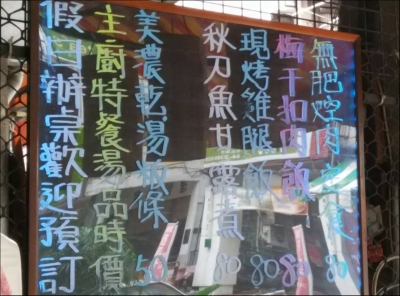 無肥焢肉定食 80
梅干扣肉飯 80
現烤雞腿飯 80
秋刀魚甘露煮 80
美濃乾湯粄條 50
主廚特餐湯品時價
假日辦桌歡迎預訂